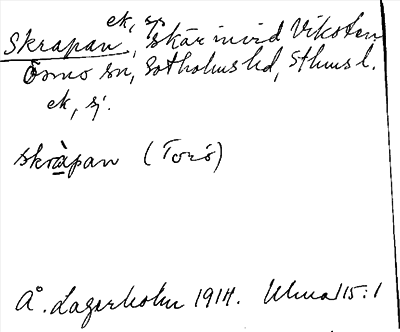 ek, sj
Skrapan, skär invid Viksten
Ösmo sn, Sotholms hd, Sthms l.
ek, sj.
skràpan (Torö)
Å. Lagerholm 1914. Ulma 115:1